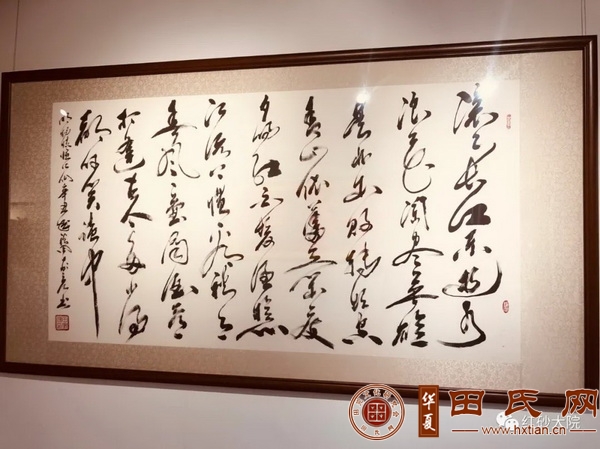 滚々长江东逝水
浪花淘尽英雄
是非成败转头空
青山依旧在几度
夕阳红白发渔樵
江渚上惯看秋月
春风一壶浊酒喜
相逢古今多少事
都付笑谈中
华夏
田氏网
www.hxtian.cn
红砂大院